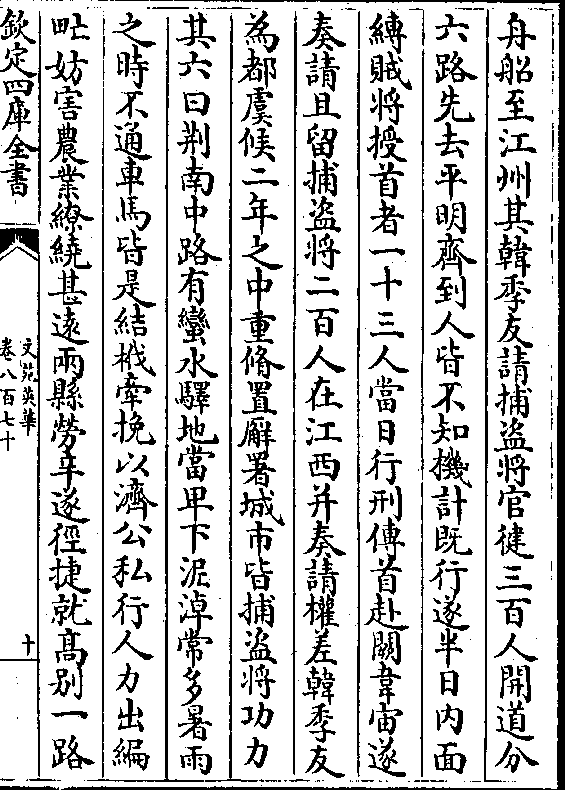 舟船至江州其韓季友請捕盗將官健三百人開道分
六路先去平明齊到人皆不知機計既行遂半日内面
縛賊将授首者一十三人當日行刑傳首赴闕韋宙遂
奏請且留捕盗將二百人在江西并奏請權差韓季友
為都虞候二年之中重脩置廨署城市皆捕盗將功力
其六曰荆南中路有蠻水驛地當卑下泥淖常多暑雨
之時不通車馬皆是結栰牽挽以濟公私行人力出編
甿妨害農業繚繞甚逺兩縣勞辛遂徑捷就髙别一路
欽定四庫全書
文苑英華
卷八百七十
十